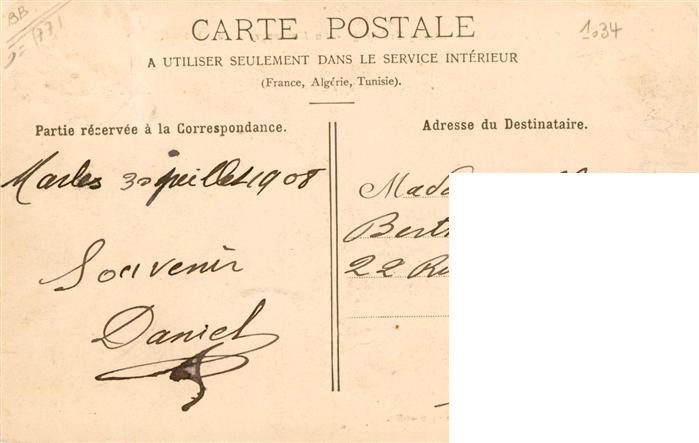 CARTE POSTALE
1034
A UTILISER SEULEMENT DANS LE SERVICE INTÉRIEUR
(France, Algérie, Tunisie).
Partie réservée à la Correspondance.
Marles 30 juillet 1908
Souvenir
Daniel
Adresse du Destinataire.
22